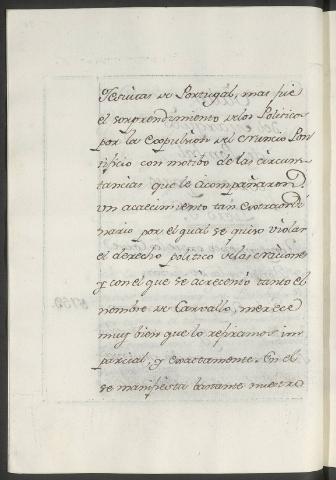 Jesuitas de Portugal, mas fue
el sorprendimiento delos Politicos
por la Expulsion del Nuncio Pon
tificio con motibo de las circuns
tancias que le acompañaron.
Un acaecimiento tan extraordi
nario por el qual se quiso violar
el derecho politico delas Naciones
y con el que se acrecentò tanto el
nombre de Carvallo, merece
muy bien que lo refiramos im
parcial, y exactamente. En el
se manifiesta bastante nuestro